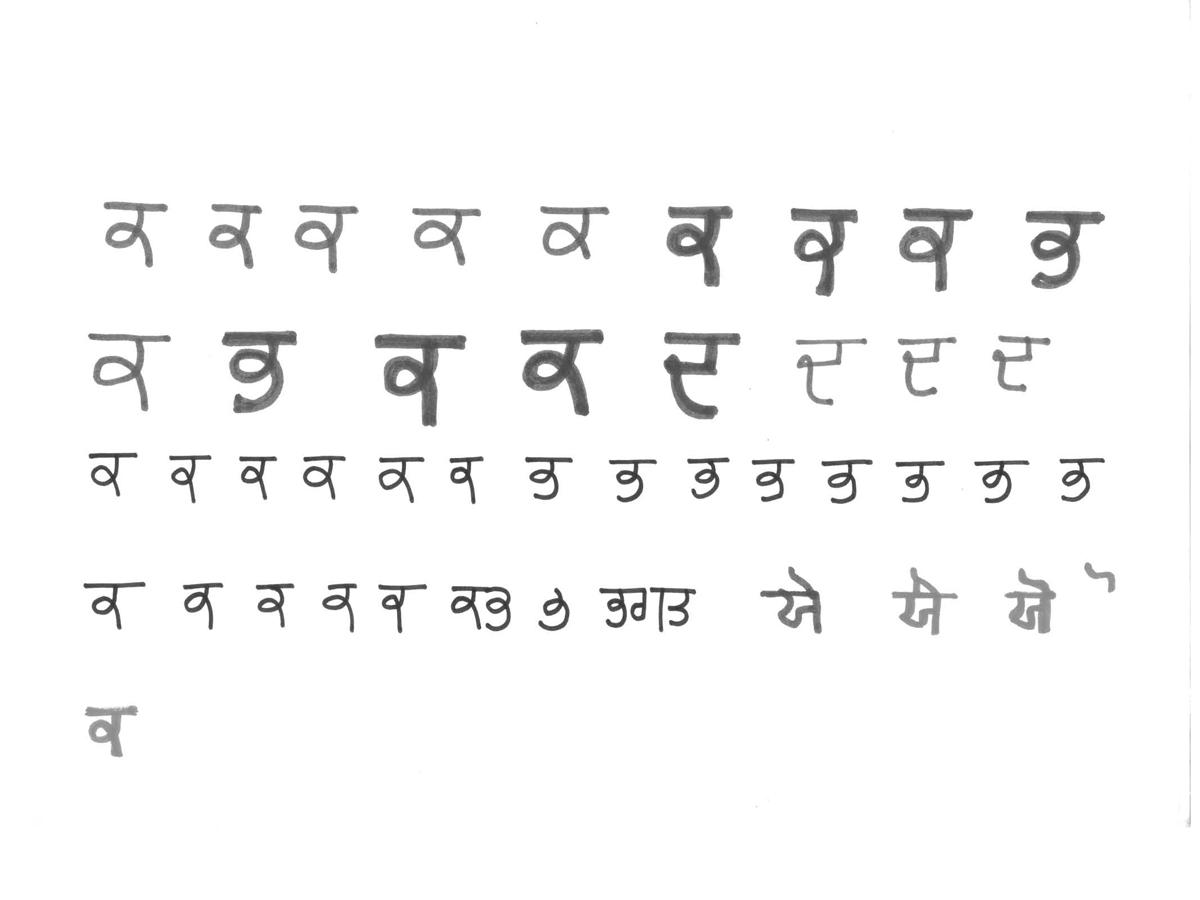 ਕ ਕ ਕ ਕ ਕ ਕ ਕ ਕ ਭ
ਕ ਭ ਕ ਕ ਦ ਦ ਦ ਦ
ਕ ਕ ਕ ਕ ਕ ਕ ਭ ਭ ਭ ਭ ਭ ਭ ਭ ਭ
ਕ ਕ ਕ ਕ ਕ ਕਭ ਭ ਭਗਤ
ਕ